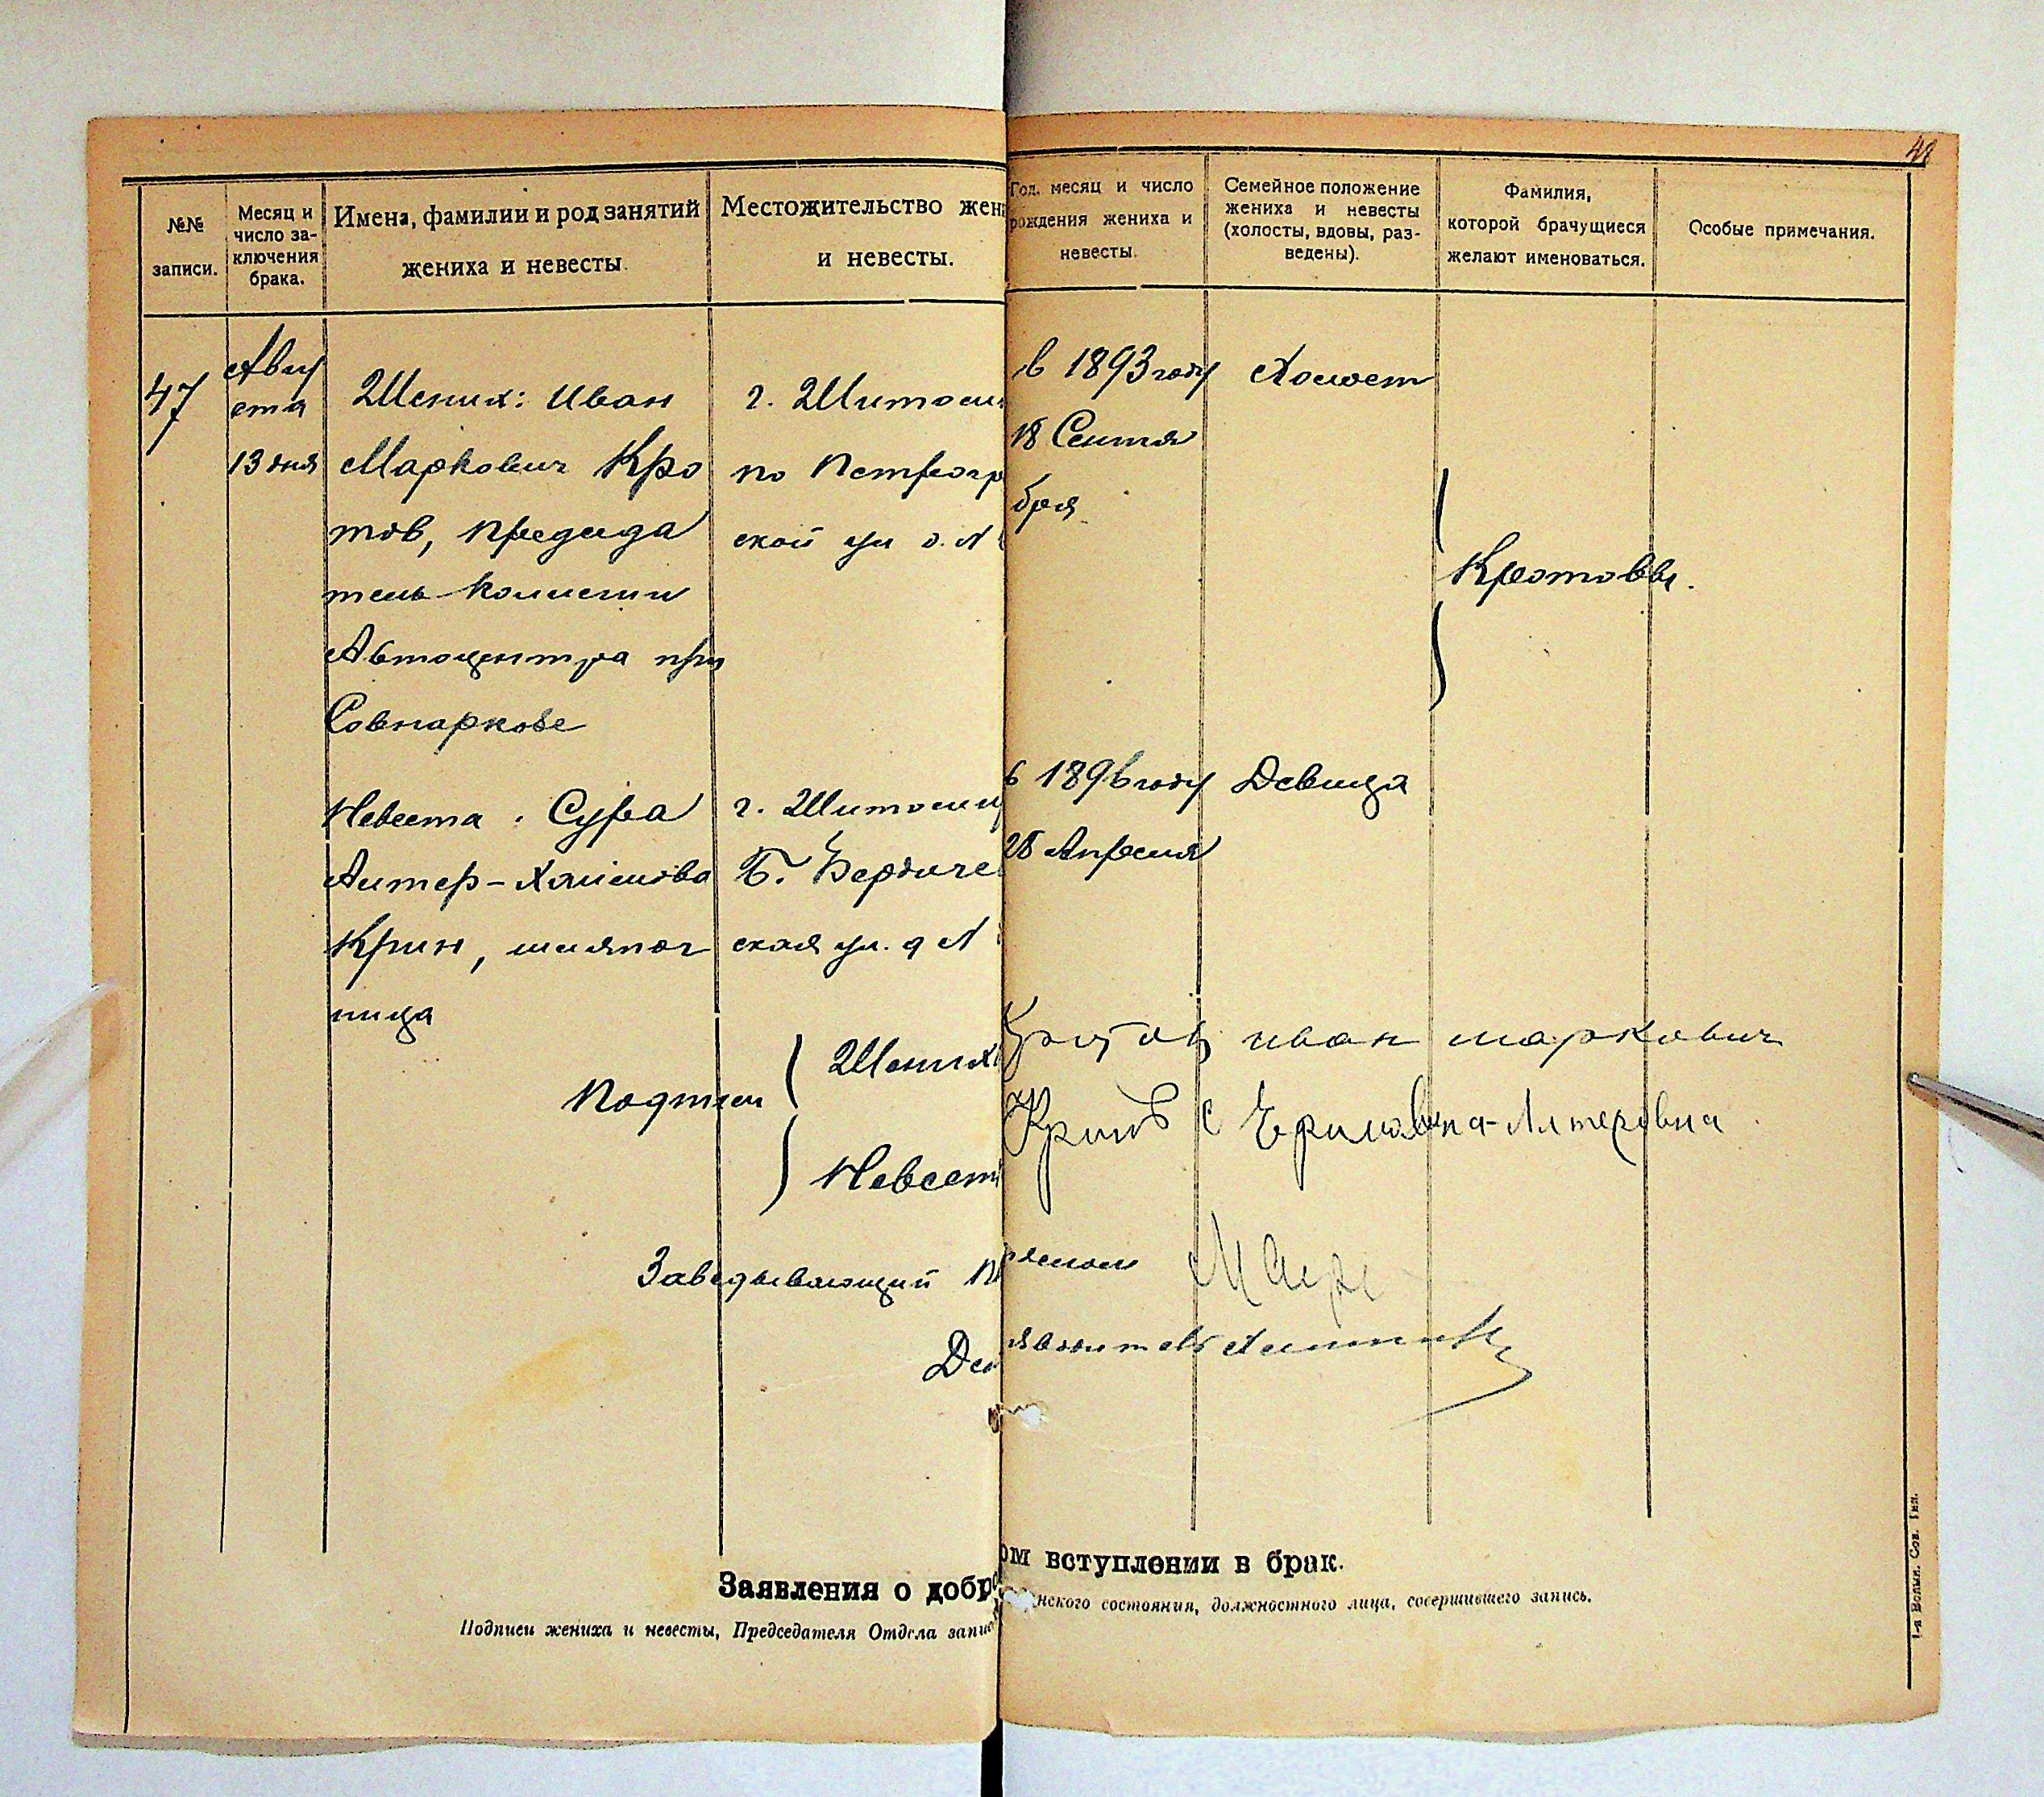 42
№№ записи.
Месяц и число заключения брака.
Имена, фамилии и род занятий жениха и невесты.
Местожительство жен
и невесты.
Год, месяц и число рождения жениха и невесты.
Семейное положение жениха и невесты (холосты, вдовы, разведены).
Фамилия, которой брачущиеся желают именоваться.
Особые примечания.
47
Авгу
ста
13 дня
Жених: Иван
Маркович Кро
тов, председа
тель Коллегии
Автоцентра при
Совнаркове
г. Житоми
по Петрогр
ской ул д. №
в 1893 году
18 Сентя
бря
Холост
Кротовы.
Невеста: Сура
Алтер-Хаимова
Крин, шляпоч
ница
г. Житомир
Б. Бердиче
ская ул. д №
в 1896 году
28 Апреля
Девица
Подписи
Жених
Кротов иван маркович
Невест
Крин С Алтеровна
Заведывающий П
Дел
Заявления о добр
ом вступлении в брак.
Подписи жениха и невесты, Председателя Отдела запис
нского состояния, должностного лица, совершившего запись.
1-я Волын. Сов. Тип.